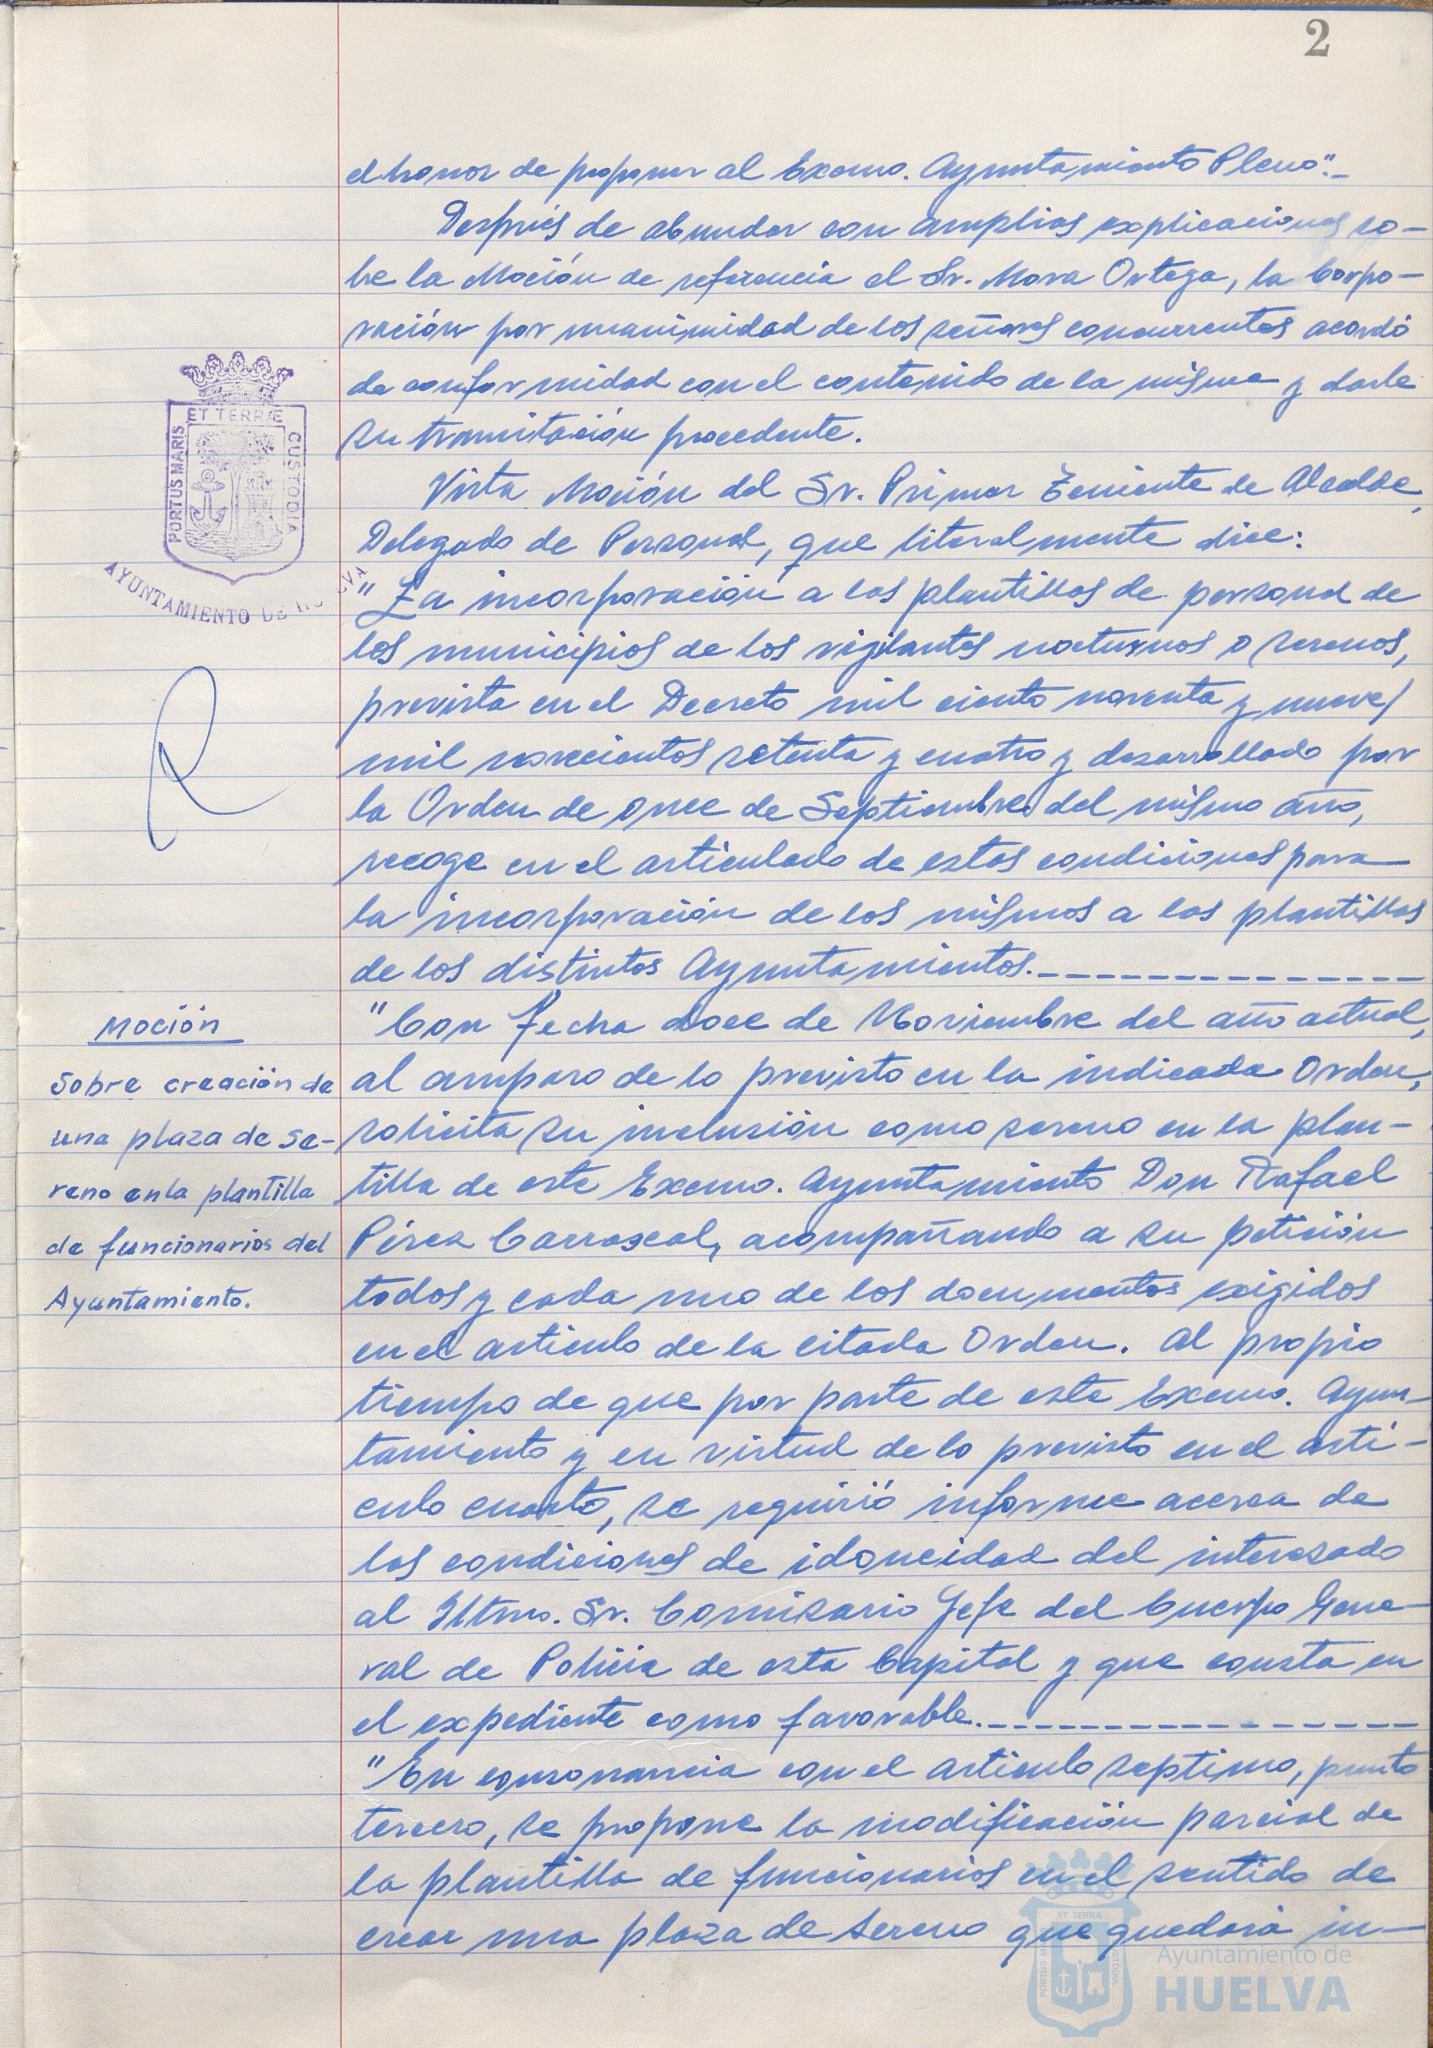 2
el honor de proponer al Excmo. Ayuntamiento Pleno".-
Después de abundar con amplias explicaciones so-
bre la Moción de referencia el Sr. Mora Ortega, la Corpo-
ración por unanimidad de los señores concurrentes acordó
de conformidad con el contenido de la misma y darle
su tramitación procedente.
Vista Moción del Sr. Primer Teniente de Alcalde,
Delegado de Personal, que literalmente dice:
"La incorporación a las plantillas de personal de
los municipios de los vigilantes nocturnos o serenos,
prevista en el Decreto mil ciento noventa y nueve/
mil novecientos setenta y cuatro y desarrollado por
la Orden de once de Septiembre del mismo año,
recoge en el articulado de estas condiciones para
la incorporación de los mismos a las plantillas
de los distintos Ayuntamientos.
ET TERRÆ
PORTUS MARIS
CUSTODIA
AYUNTAMIENTO DE HUELVA
Moción
Sobre creación de
una plaza de Se-
reno en la plantilla
de funcionarios del
Ayuntamiento.
"Con fecha doce de Noviembre del año actual,
al amparo de lo previsto en la indicada Orden,
solicita su inclusión como sereno en la plan-
tilla de este Excmo. Ayuntamiento Don Rafael
Pérez Carrascal, acompañando a su petición
todos y cada uno de los documentos exigidos
en el articulo de la citada Orden. Al propio
tiempo de que por parte de este Excmo. Ayun-
tamiento y en virtud de lo previsto en el arti-
culo cuarto, se requirió informe acerca de
las condiciones de idoneidad del interesado
al Iltmo. Sr. Comisario Jefe del Cuerpo Gene-
ral de Policia de esta Capital y que consta en
el expediente como favorable.
"En consonancia con el articulo septimo, punto
tercero, se propone la modificación parcial de
la plantilla de funcionarios en el sentido de
crear una plaza de Sereno que quedará in-
ET TERRÆ
PORTUS MARIS
CUSTODIA
Ayuntamiento de
HUELVA